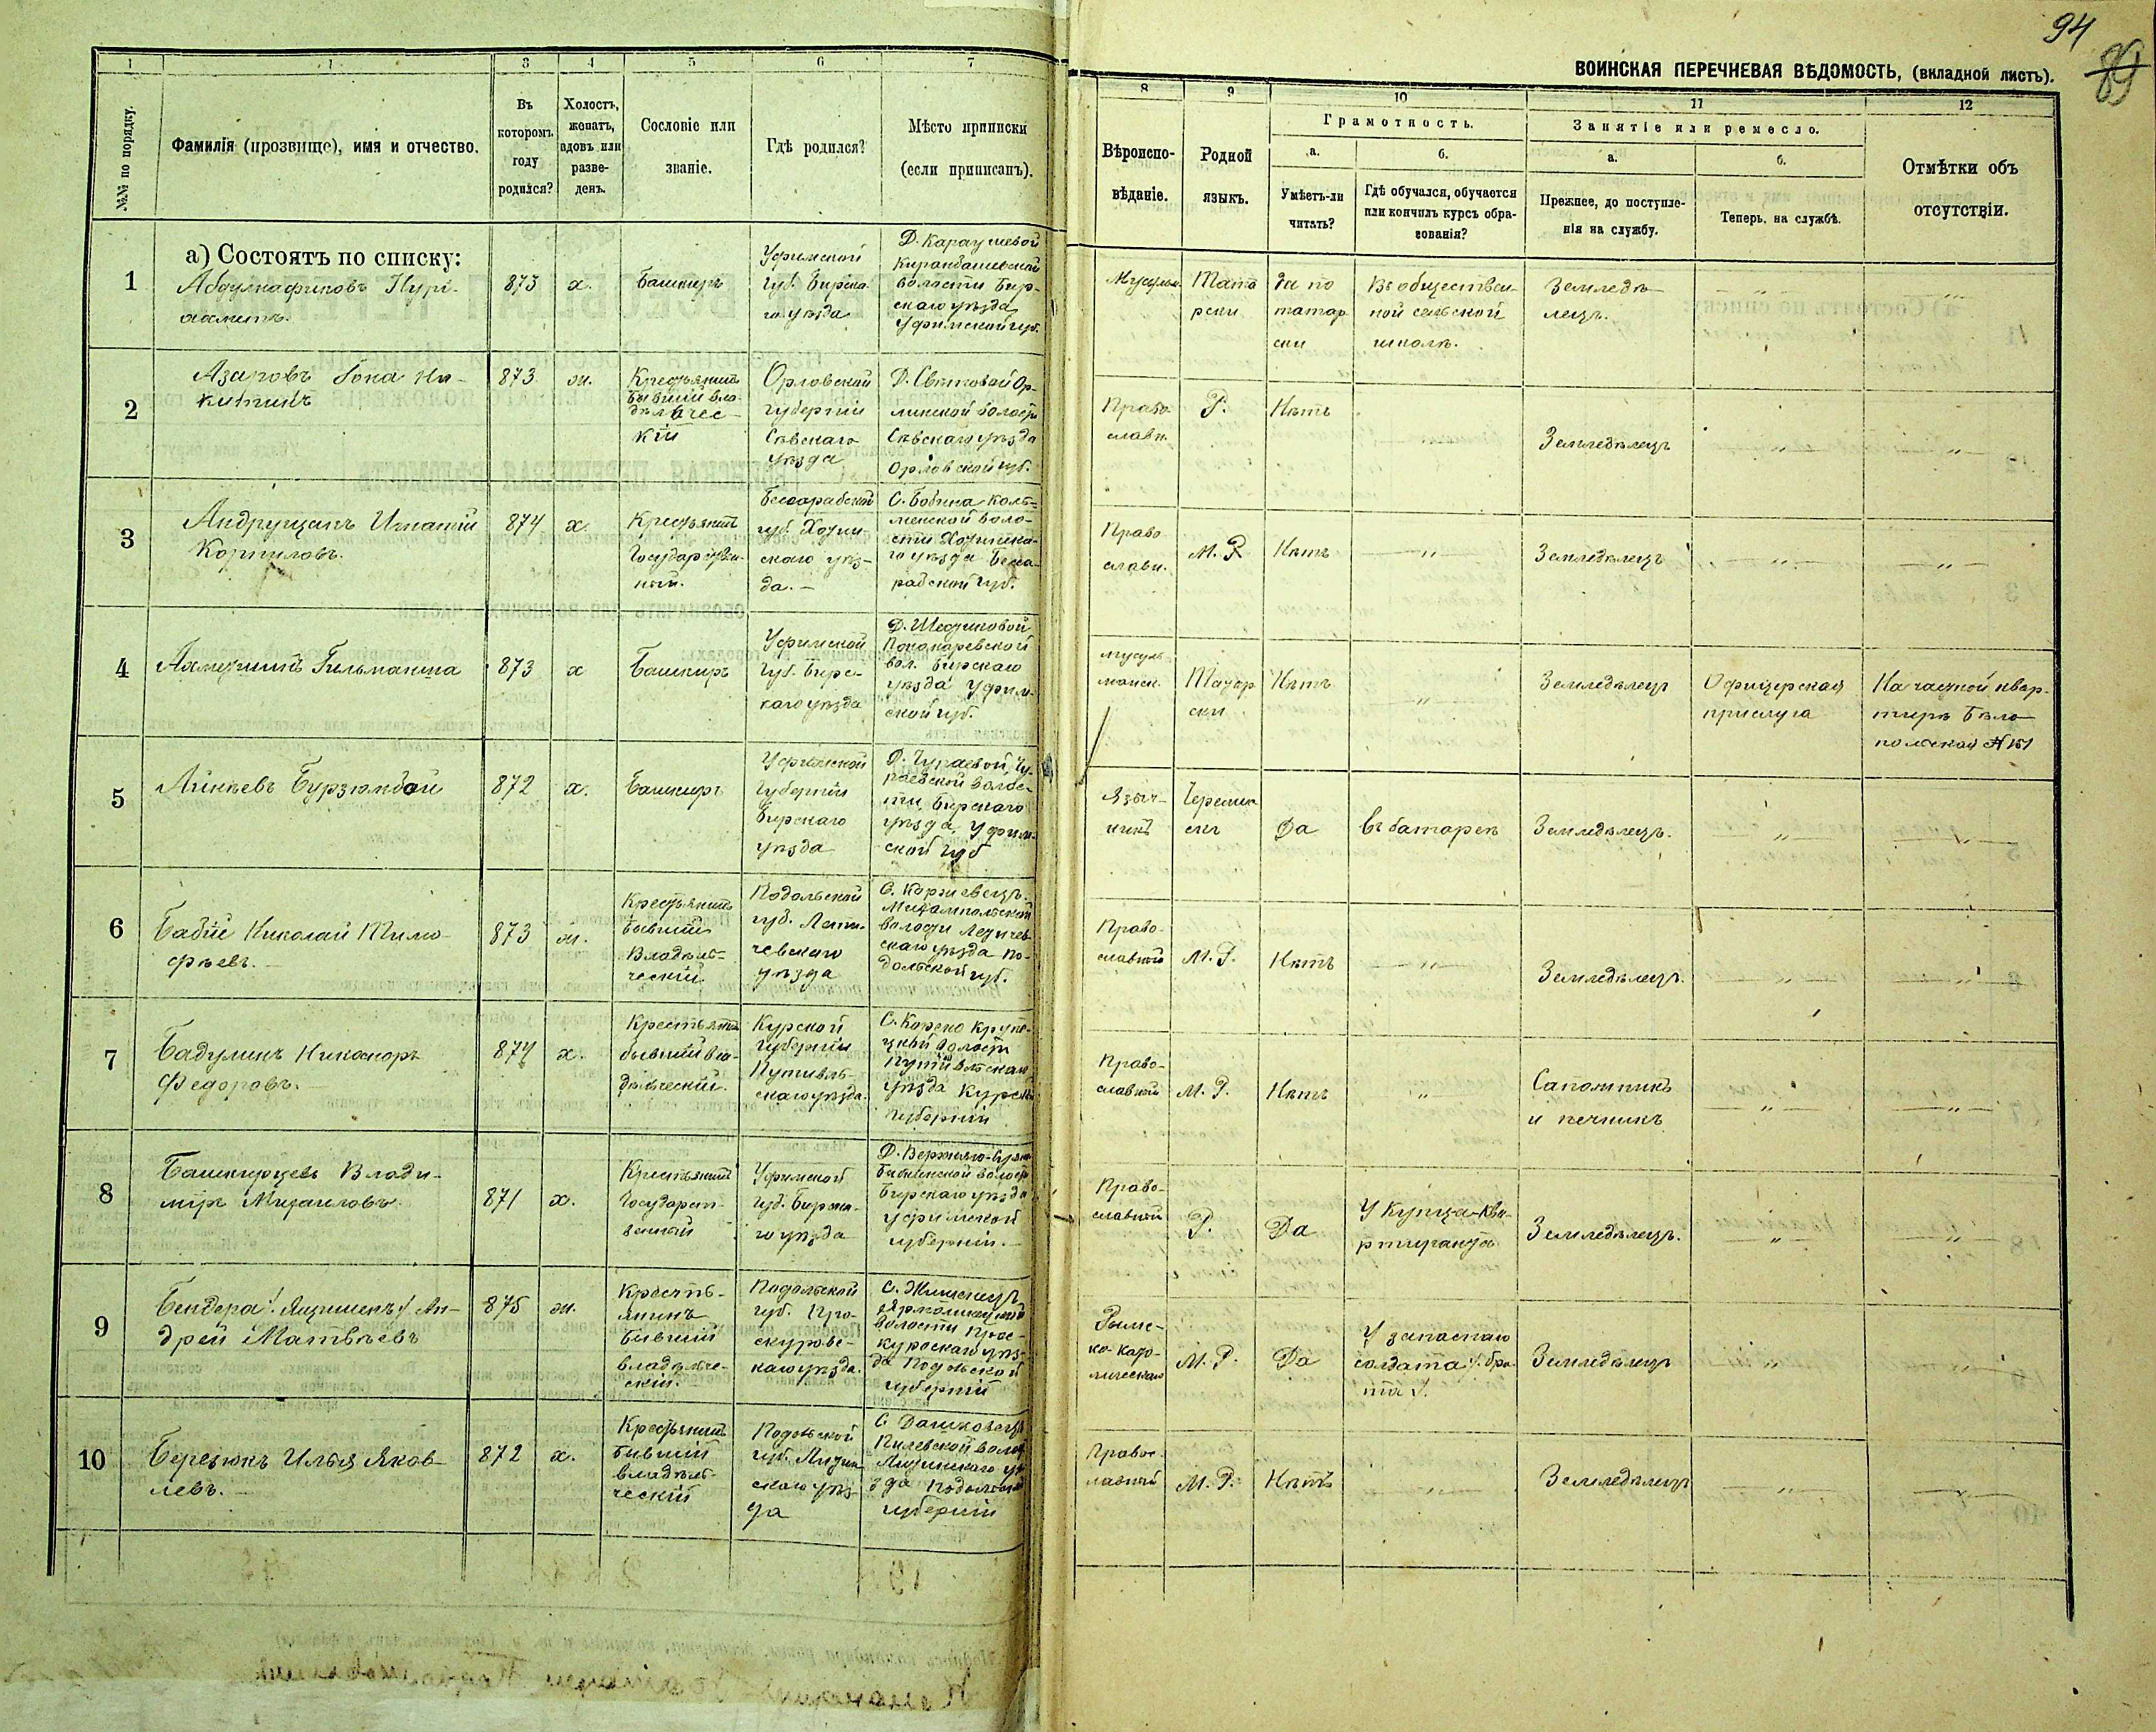 94
89
ВОИНСКАЯ ПЕРЕЧНЕВАЯ ВѢДОМОСТЬ, (вкладной листъ).
1 1 3 4 5 6 7 8 9 10 11 12
№№ по порядку.
Фамилія (прозвище), имя и отчество.
Въ которомъ году родился?
Холостъ, женатъ, вдовъ или разведенъ.
Сословіе или званіе.
Гдѣ родился?
Мѣсто приписки (если приписанъ).
Вѣроиспо-
вѣданіе.
Родной
языкъ.
Грамотность.
а.
Умѣетъ-ли
читать?
б.
Гдѣ обучался, обучается
или кончилъ курсъ обра-
зованія?
Занятіе или ремесло.
а.
Прежнее, до поступле-
нія на службу.
б.
Теперь, на службѣ.
Отмѣтки объ
отсутствіи.
а) Состоятъ по списку:
1
873
х.
Башкиръ
Уфимской
губ. Бирска-
го уѣзда
волости Бир-
скаго уѣзда
Уфимской губ.
Мусульм.
Тата
рски
да по
татар
ски
Въ обществен-
ной сельской
школѣ.
Земледѣ-
лецъ.
2
Азаровъ
873
ж.
Крестьянинъ
бывшій вла-
дѣльчес-
кій
Орловской
губерніи
Сѣвскаго
уѣзда
Сѣвскаго уѣзда
Орловской губ.
Право-
славн.
Р.
Нѣтъ
Земледѣлецъ
3
Андрущакъ Игнатій
Корниловъ.
874
х.
Крестьянинъ
Государствен-
ный.
Бессарабской
губ. Хотин-
скаго уѣз-
да.-
С. Бабина
Право
славн.
М. Р.
Нѣтъ
Земледѣлецъ
4
Гильманша
873
х
Башкиръ
Уфимской
губ. Бирс-
каго уѣзда
вол. Бирскаго
уѣзда Уфим-
ской губ.
мусуль
манск.
Татар
ски
Нѣтъ
Земледѣлец
Офицерская
прислуга
На частной квар-
тирѣ Бѣло-
польская №
5
872
х.
Башкиръ
Уфимской
губерніи
Бирскаго
уѣзда
Д. Чураевой Чу-
раевской волос-
ти, Бирскаго
уѣзда, Уфим-
ской губ
Языч-
никъ
Черемис
ски
Да
Въ батареѣ
Земледѣлецъ.
6
Бабій Николай Тимо-
фѣевъ.
873
ж.
Крестьянинъ
бывшій
Владѣль-
ческій.
Подольской
губ. Лети-
чевскаго
уѣзда
скаго уѣзда По-
дольской губ.
Право-
славный
М. Р.
Нѣтъ
Земледѣлецъ.
7
Бадулинъ Никаноръ
Федоровъ.
874
х.
Крестьянинъ
бывшій вла-
дѣльческій.
Курской
губерніи
Путивль-
скаго уѣзда.
Путивльскаго
уѣзда Курской
губерніи
Право-
славный
М. Р.
Нѣтъ
Сапожникъ
и печникъ
8
Башкирцевъ Влади-
міръ Михаиловъ.
871
х.
Крестьянинъ
Государст-
венный
Уфимской
губ. Бирска-
го уѣзда
Бирскаго уѣзда
Уфимской
губерніи.
Право-
славный
Р.
Да
У Купца-ква-
ртиранта
Земледѣлецъ.
9
Бендера
Ан-
дрей Матвѣевъ
875
ж.
Кресть-
янинъ
бывшій
владѣльче-
скій.
Подольской
губ. Про-
скуровс-
каго уѣзда.
волости Прос-
куровскаго уѣз-
да Подольской
губерніи
Римс-
ко-като-
лическаго
М. Р.
Да
У запаснаго
солдата /. бра-
та /.
Земледѣлецъ
10
Березюкъ Илья Яков-
левъ.
872
х.
Крестьянинъ
бывшій
владѣль-
ческій
Подольской
губ. Литин-
скаго уѣз-
да
С. Дашковецъ
Литинскаго уѣ-
зда Подольской
губерніи
Правос-
лавный
М. Р.
Нѣтъ
Земледѣлецъ